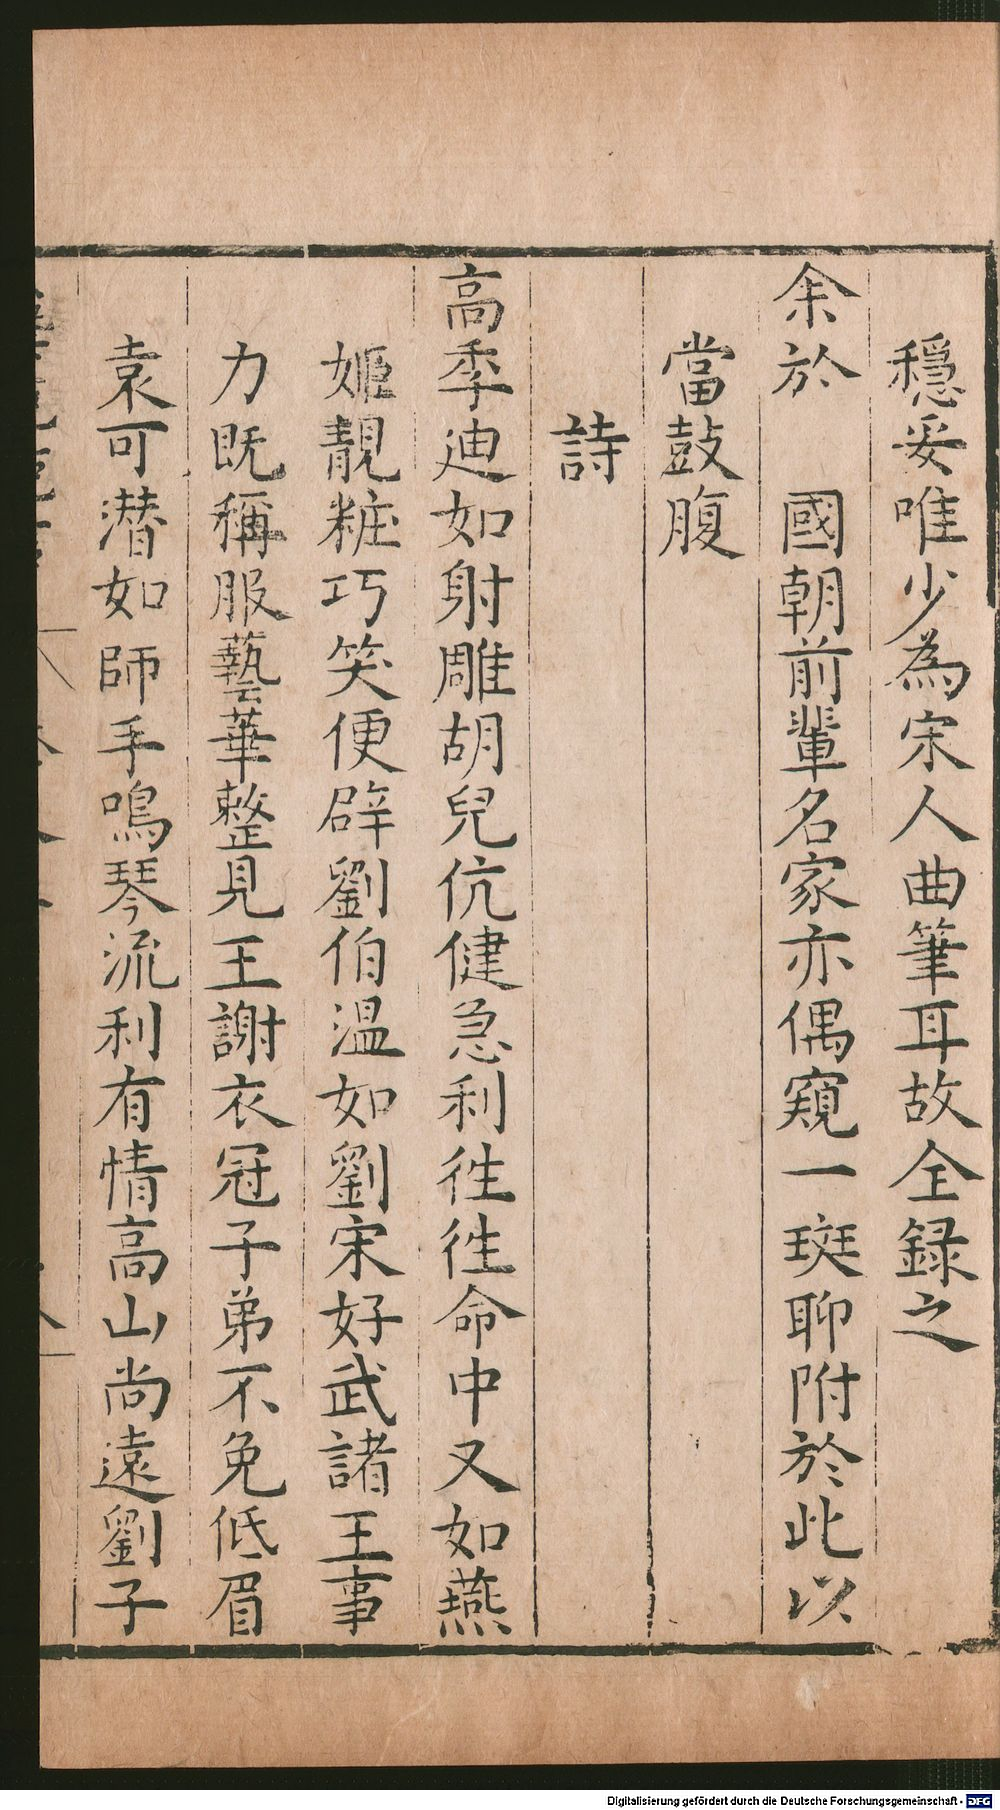 穩妥唯少為宋人曲筆耳故全録之
余於 國朝前輩名家亦偶窺一斑聊附於此以
當鼓腹
詩
高季迪如射雕胡兒伉健急利徃徃命中又如燕
姬靚粧巧笑便辟劉伯溫如劉宋好武諸王事
力既稱服藝華整見王謝衣冠子弟不免低眉
袁可潜如師手鳴琴流利有情高山尚遠劉子
Digitalisierung gefördert durch die Deutsche Forschungsgemeinschaft - DFG